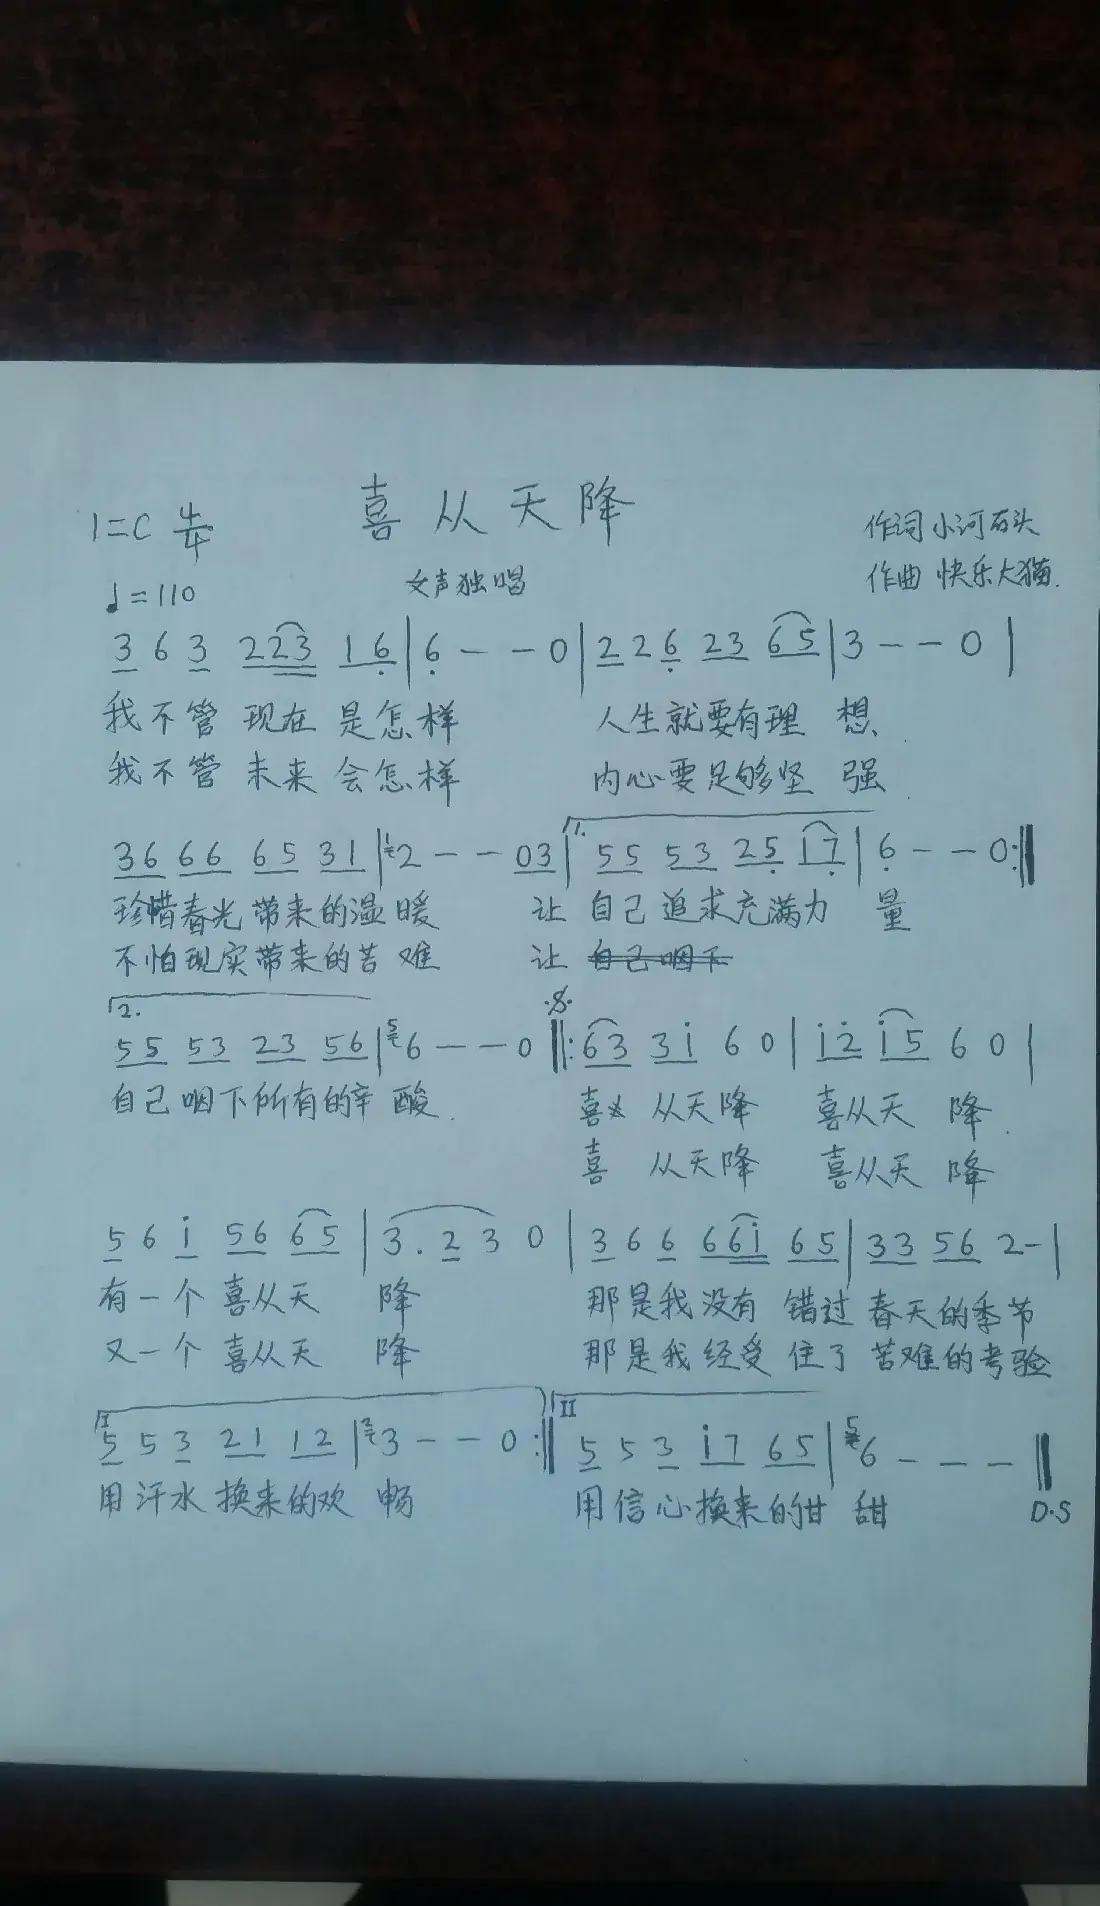 喜从天降
1=C 4/4
作词 小河石头
♩=110
女声独唱
作曲 快乐大猫.
3 6 3 2 2 3 1 6̣ | 6̣ - - 0 | 2 2 6̣ 2 3 6 5 | 3 - - 0 |
我不管 现在 是怎样 人生就要有理 想
我不管 未来 会怎样 内心要足够坚 强
3 6 6 6 6 5 3 1 | 1 2 - - 0 3 | 1. 5 5 5 3 2 5̣ 1 7̣ | 6̣ - - 0 :‖
珍惜春光带来的温暖 让 自己追求充满力 量
不怕现实带来的苦难 让 自己咽下
2. 5 5 5 3 2 3 5 6 | 5 6 - - 0 𝄋 ‖: 6 3 3 1̇ 6 0 | 1̇ 2̇ 1̇ 5 6 0 |
自己咽下所有的辛 酸 喜 从天降 喜从天 降
喜 从天降 喜从天 降
5 6 1̇ 5 6 6 5 | 3 . 2 3 0 | 3 6 6 6 6 1̇ 6 5 | 3 3 5 6 2 - |
有一个 喜从天 降 那是我没有 错过 春天的季节
又一个 喜从天 降 那是我经受 住了 苦难的考验
I 5 5 3 2 1 1 2 | 2 3 - - 0 :‖ II 5 5 3 1̇ 7 6 5 | 5 6 - - - ‖
用汗水 换来的欢 畅 用信心换来的甘 甜
D.S